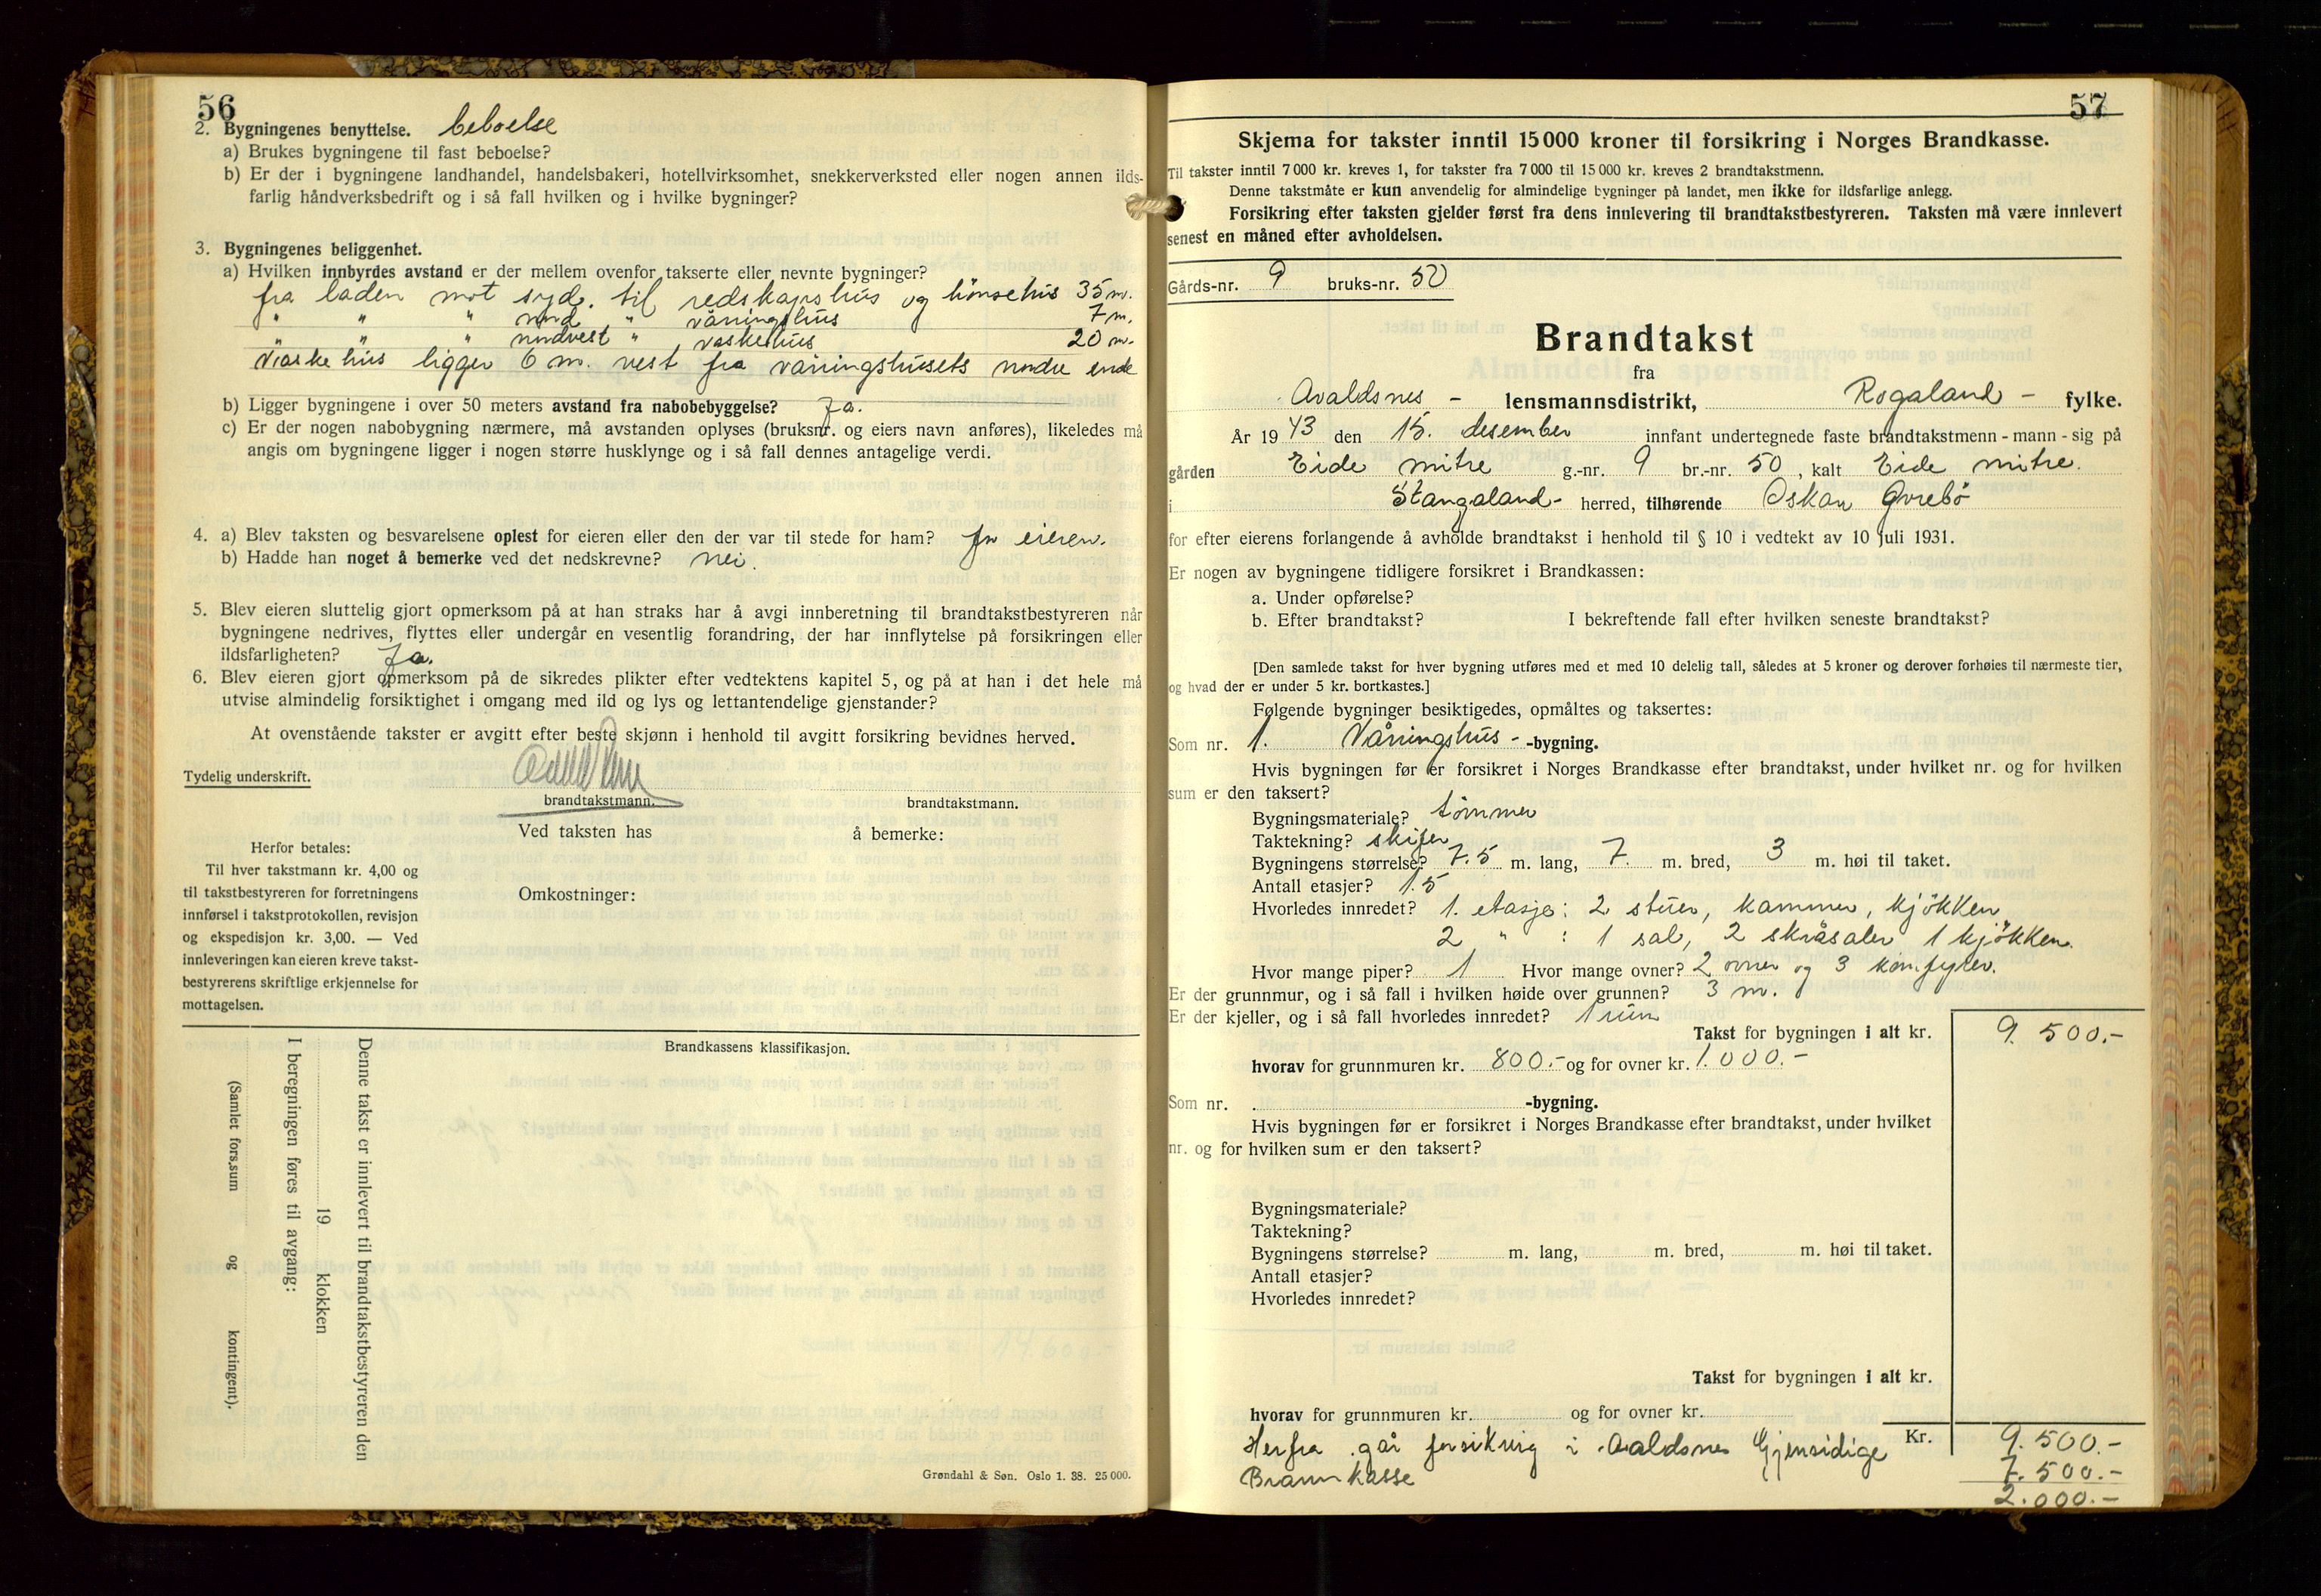 56
2. Bygningenes benyttelse. beboelse
a) Brukes bygningene til fast beboelse?
b) Er der i bygningene landhandel, handelsbakeri, hotellvirksomhet, snekkerverksted eller nogen annen ilds-
farlig håndverksbedrift og i så fall hvilken og i hvilke bygninger?
3. Bygningenes beliggenhet.
a) Hvilken innbyrdes avstand er der mellem ovenfor takserte eller nevnte bygninger?
fra laden mot syd. til redskapshus og hönsehus 35 m.
" " " nord " våningshus 7 m.
" " " nordvest " vaskehus 20 m.
Vaskehus ligger 6 m. vest fra våningshusets nordre ende
b) Ligger bygningene i over 50 meters avstand fra nabobebyggelse? Ja.
c) Er der nogen nabobygning nærmere, må avstanden oplyses (bruksnr. og eiers navn anføres), likeledes må
angis om bygningene ligger i nogen større husklynge og i så fall dennes antagelige verdi.
4. a) Blev taksten og besvarelsene oplest for eieren eller den der var til stede for ham? for eieren.
b) Hadde han noget å bemerke ved det nedskrevne? nei.
5. Blev eieren sluttelig gjort opmerksom på at han straks har å avgi innberetning til brandtakstbestyreren når
bygningene nedrives, flyttes eller undergår en vesentlig forandring, der har innflytelse på forsikringen eller
ildsfarligheten? Ja.
6. Blev eieren gjort opmerksom på de sikredes plikter efter vedtektens kapitel 5, og på at han i det hele må
utvise almindelig forsiktighet i omgang med ild og lys og lettantendelige gjenstander?
At ovenstående takster er avgitt efter beste skjønn i henhold til avgitt forsikring bevidnes herved.
Tydelig underskrift.
brandtakstmann. brandtakstmann.
Ved taksten has å bemerke:
Herfor betales:
Til hver takstmann kr. 4,00 og
til takstbestyreren for forretningens
innførsel i takstprotokollen, revisjon
og ekspedisjon kr. 3,00. — Ved
innleveringen kan eieren kreve takst-
bestyrerens skriftlige erkjennelse for
mottagelsen.
Omkostninger:
Brandkassens klassifikasjon.
Denne takst er innlevert til brandtakstbestyreren den
19 klokken
I beregningen føres til avgang:
(Samlet fors.sum og kontingent).
Grøndahl & Søn. Oslo 1. 38. 25 000.
57
Skjema for takster inntil 15 000 kroner til forsikring i Norges Brandkasse.
Til takster inntil 7 000 kr. kreves 1, for takster fra 7 000 til 15 000 kr. kreves 2 brandtakstmenn.
Denne takstmåte er kun anvendelig for almindelige bygninger på landet, men ikke for ildsfarlige anlegg.
Forsikring efter taksten gjelder først fra dens innlevering til brandtakstbestyreren. Taksten må være innlevert
senest en måned efter avholdelsen.
Gårds-nr. 9 bruks-nr. 50
Brandtakst
fra
Avaldsnes - lensmannsdistrikt, Rogaland - fylke.
År 1943 den 15. desember innfant undertegnede faste brandtakstmenn - mann - sig på
gården Eide mitre g.-nr. 9 br.-nr. 50, kalt Eide mitre.
i Stangaland - herred, tilhørende Oskar Øvrebö
for efter eierens forlangende å avholde brandtakst i henhold til § 10 i vedtekt av 10 juli 1931.
Er nogen av bygningene tidligere forsikret i Brandkassen:
a. Under opførelse?
b. Efter brandtakst? I bekreftende fall efter hvilken seneste brandtakst?
[Den samlede takst for hver bygning utføres med et med 10 delelig tall, således at 5 kroner og derover forhøies til nærmeste tier,
og hvad der er under 5 kr. bortkastes.]
Følgende bygninger besiktigedes, opmåltes og taksertes:
Som nr. 1. Våningshus - -bygning.
Hvis bygningen før er forsikret i Norges Brandkasse efter brandtakst, under hvilket nr. og for hvilken
sum er den taksert?
Bygningsmateriale? tömmer
Taktekning? skifer
Bygningens størrelse? 7.5 m. lang, 7. m. bred, 3 m. høi til taket.
Antall etasjer? 1.5
Hvorledes innredet? 1. etasje: 2 stuer, kammer, kjökken,
2 " : 1 sal, 2 skråsaler 1 kjökken.
Hvor mange piper? 1 Hvor mange ovner? 2 ovner og 3 komfyrer.
Er der grunnmur, og i så fall i hvilken høide over grunnen? 3 m.
Er der kjeller, og i så fall hvorledes innredet? 1 rum
Takst for bygningen i alt kr. 9.500.-
hvorav for grunnmuren kr. 800.- og for ovner kr. 1.000.-
Som nr. -bygning.
Hvis bygningen før er forsikret i Norges Brandkasse efter brandtakst, under hvilket
nr. og for hvilken sum er den taksert?
Bygningsmateriale?
Taktekning?
Bygningens størrelse? m. lang, m. bred, m. høi til taket.
Antall etasjer?
Hvorledes innredet?
Takst for bygningen i alt kr.
hvorav for grunnmuren kr. og for ovner kr.
Herfra går forsikring i Avaldsnes Gjensidige Kr. 9.500.-
Brannkasse 7.500.-
2.000.-